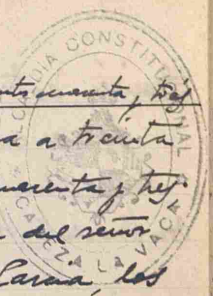 ALCALDIA CONSTITUCIONAL
CABEZA LA VACA
cuarenta y tres
a a treinta
uarenta y tres
del señor
García, los